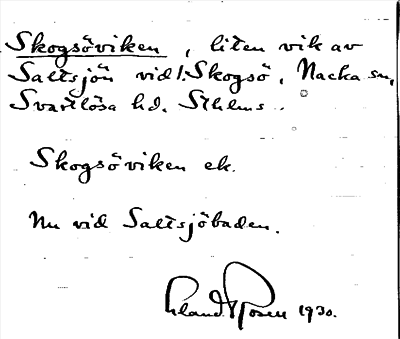 Skogsöviken, liten vik av
Saltsjön vid Skogsö, Nacka sn,
Svartlösa hd. Sthlms
Skogsöviken ek.
Nu vid Saltsjöbaden.
Rosen 1930.